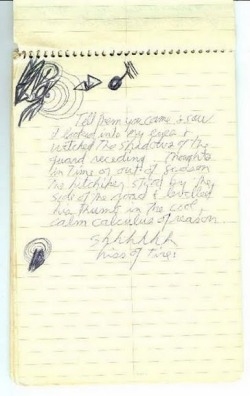 Tell them you came & saw
& looked into my eyes &
witched the shadow of the
guard receding. Thoughts
in time or out of season
The hitchiker stood by the
side of the road & levelled
his thumb in the cool
calm calculus of reason.
shhhhhh
hiss of tires